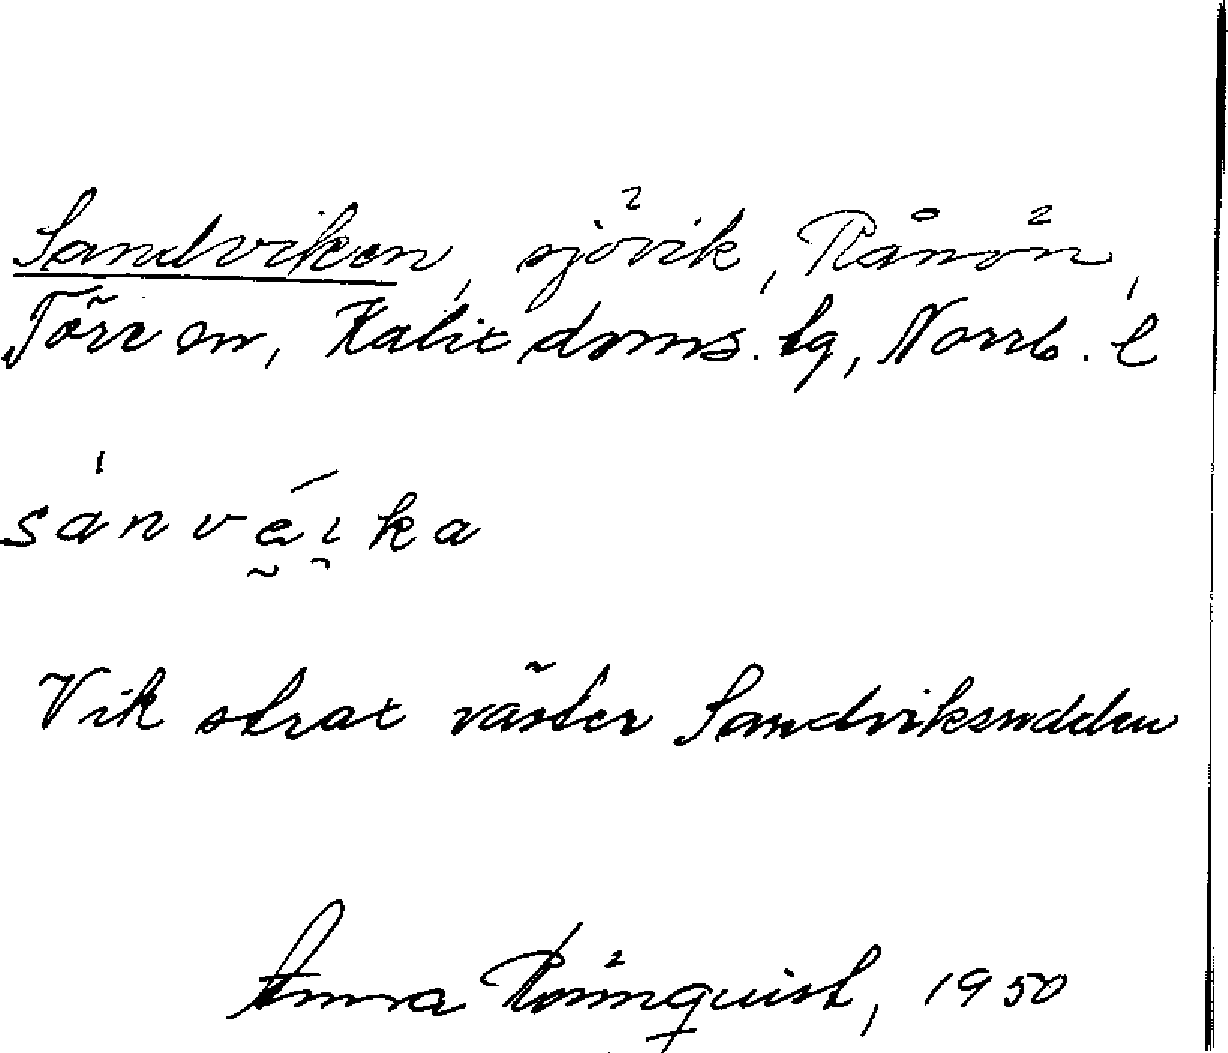 Sandviken, sjövik, Rånön,
Töre sn, Kalix doms. lg, Norrb. l
sánvéika
Vik strax väster Sandviksudden
Anna Rönnquist, 1950